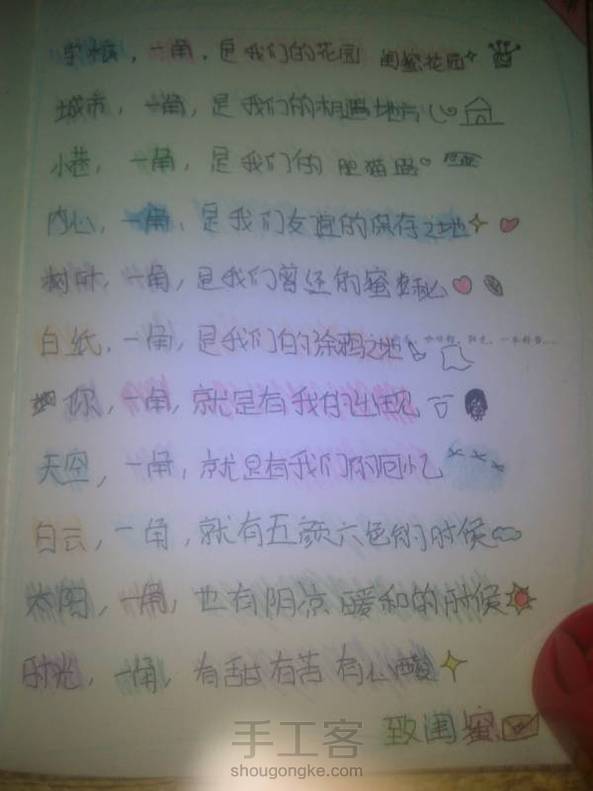 学校，一角，是我们的花园 闺蜜花园
城市，一角，是我们的相遇地点
小巷，一角，是我们的 肥猫路
内心，一角，是我们友谊的保存之地
树叶，一角，是我们曾经的蜜秘
白纸，一角，是我们的涂鸦之地
你，一角，就是有我的
天空，一角，就是有我们你回忆
白云，一角，就有五颜六色的时候
太阳，一角，也有阴凉 暖和的时候
时光，一角，有甜有苦有心酸
致闺蜜
手工客
shougongke.com